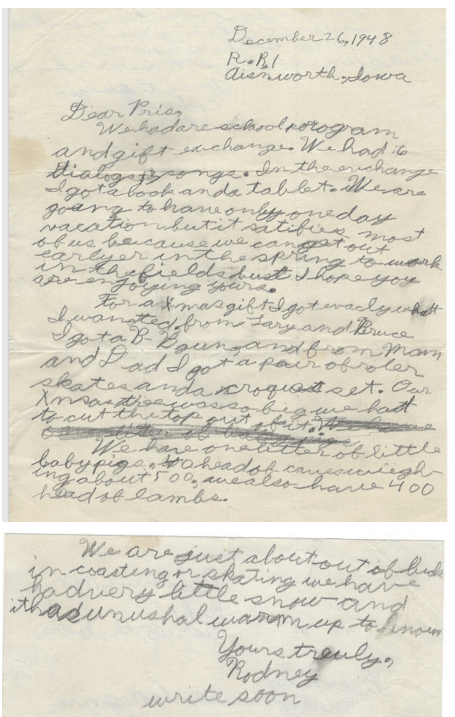 December 26, 1948
R.R.1
Ainsworth, Iowa
Dear Pris,
We had are school program
and gift exchange. We had 16
dialogs, songs. In the exchange
I got a book and a tablet. We are
going to have only one day
vacation but it satifies most
of us because we can get out
earlyer in the spring to work
in the fields but I hope you
are enjoying yours.
For a Xmas gift I got exacly what
I wanted, from Tary and Bruce
I got a B-B gun, and from Mom
and Dad I got a pair of roler
skates and a croquet set. Our
Xmas tree was so big we had
to cut the top out of it.
We have one litter of little
baby pigs. 40 head of caves wiegh-
ing about 500, we also have 400
head of lambs.
We are just about out of luck
in coasting or skating we have
had very little snow and
it has unushal warm up to know
Yours treuly,
Rodney
write soon